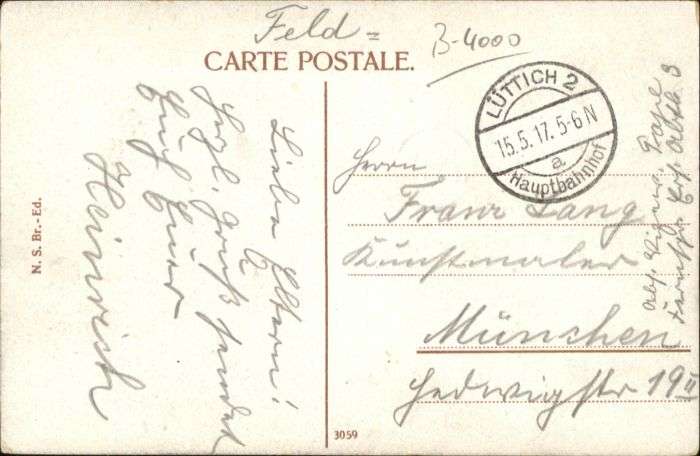 Feld=
CARTE POSTALE.
B-4000
LÜTTICH 2
15.5.17.5-6N
a
Hauptbahnhof
Liebe Eltern!
Herzl. Gruß sendet
Euch Euer
Heinrich
Herrn
Franz Lang
Kunstmaler
München
Hedwigstr 19 II
Abs.
N. S. Br.-Ed.
3059